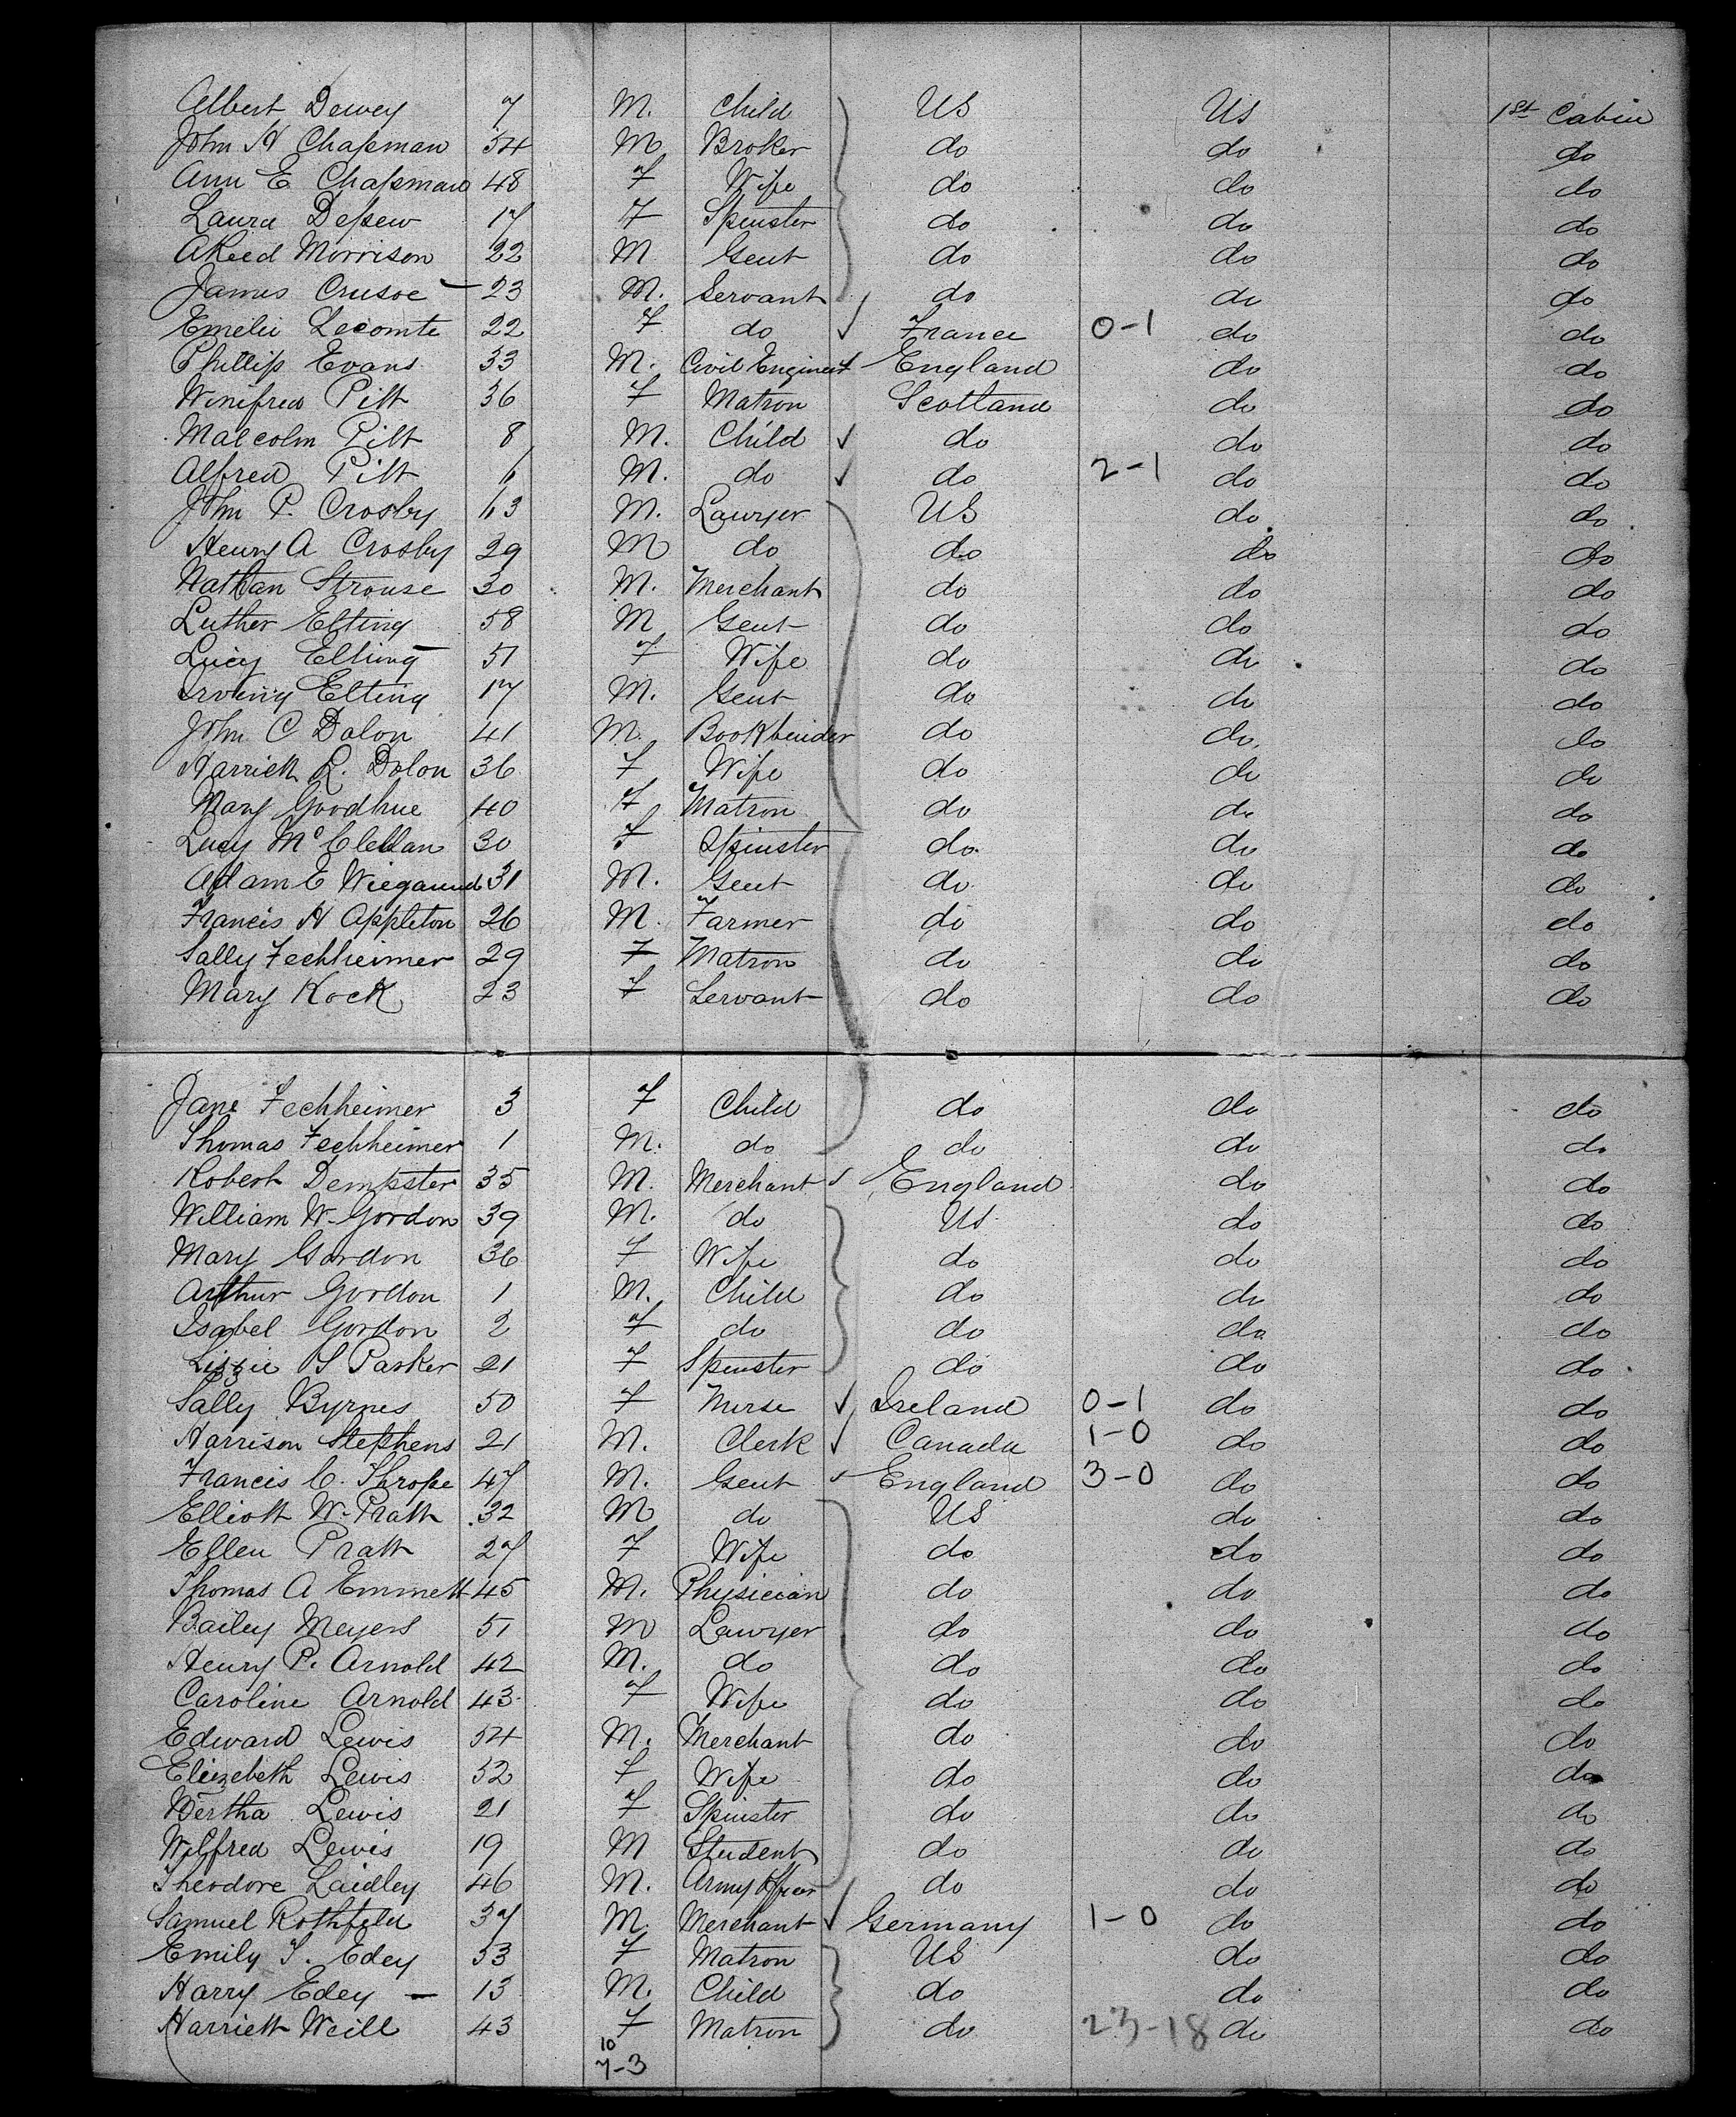 Albert Dewey 7 M. Child US US 1st Cabin
John H Chapman 54 M Broker do do do
Ann E Chapman 48 F Wife do do do
Laura Depew 17 F Spinster do do do
A Reed Morrison 22 M Gent do do do
James Crusoe 23 M. Servant do do do
Emelie Lecomte 22 F do France 0-1 do do
Phillip Evans 33 M. Civil Engineer England do do
Winifred Pitt 36 F Matron Scotland do do
Malcolm Pitt 8 M. Child do do do
Alfred Pitt 6 M. do do 2-1 do do
John P. Crosby 63 M. Lawyer US do do
Henry A Crosby 29 M do do do do
Nathan Strouse 30 M. Merchant do do do
Luther Elting 58 M Gent do do do
Lucy Elting 51 F Wife do do do
Irving Elting 17 M. Gent do do do
John C Dolon 41 M. Bookbinder do do do
Harriett R. Dolon 36 F Wife do do do
Mary Goodhue 40 F Matron do do do
Lucy McClellan 30 F Spinster do do do
Adam E Wiegaund 31 M. Gent do do do
Francis H Appleton 26 M. Farmer do do do
Sally Fechheimer 29 F Matron do do do
Mary Kock 23 F Servant do do do
Jane Fechheimer 3 F Child do do do
Thomas Fechheimer 1 M. do do do do
Robert Dempster 35 M. Merchant England do do
William W. Gordon 39 M. do US do do
Mary Gordon 36 F Wife do do do
Arthur Gordon 1 M. Child do do do
Isabel Gordon 2 F do do do do
Lizzie S Parker 21 F Spinster do do do
Sally Byrnes 50 F Nurse Ireland 0-1 do do
Harrison Stephens 21 M. Clerk Canada 1-0 do do
Francis C. Thrope 47 M. Gent England 3-0 do do
Elliott W. Pratt 32 M do US do do
Ellen Pratt 27 F Wife do do do
Thomas A Emmett 45 M. Physician do do do
Bailey Meyers 51 M Lawyer do do do
Henry P. Arnold 42 M. do do do do
Caroline Arnold 43 F Wife do do do
Edward Lewis 54 M. Merchant do do do
Elizebeth Lewis 52 F Wife do do do
Bertha Lewis 21 F Spinster do do do
Wilfred Lewis 19 M Student do do do
Theodore Laidley 46 M. Army Officer do do do
Samuel Rothfeld 37 M. Merchant Germany 1-0 do do
Emily S. Edey 53 F Matron US do do
Harry Edey 13 M. Child do do do
Harriett Weill 43 F Matron do 23-18 do do
10
7-3